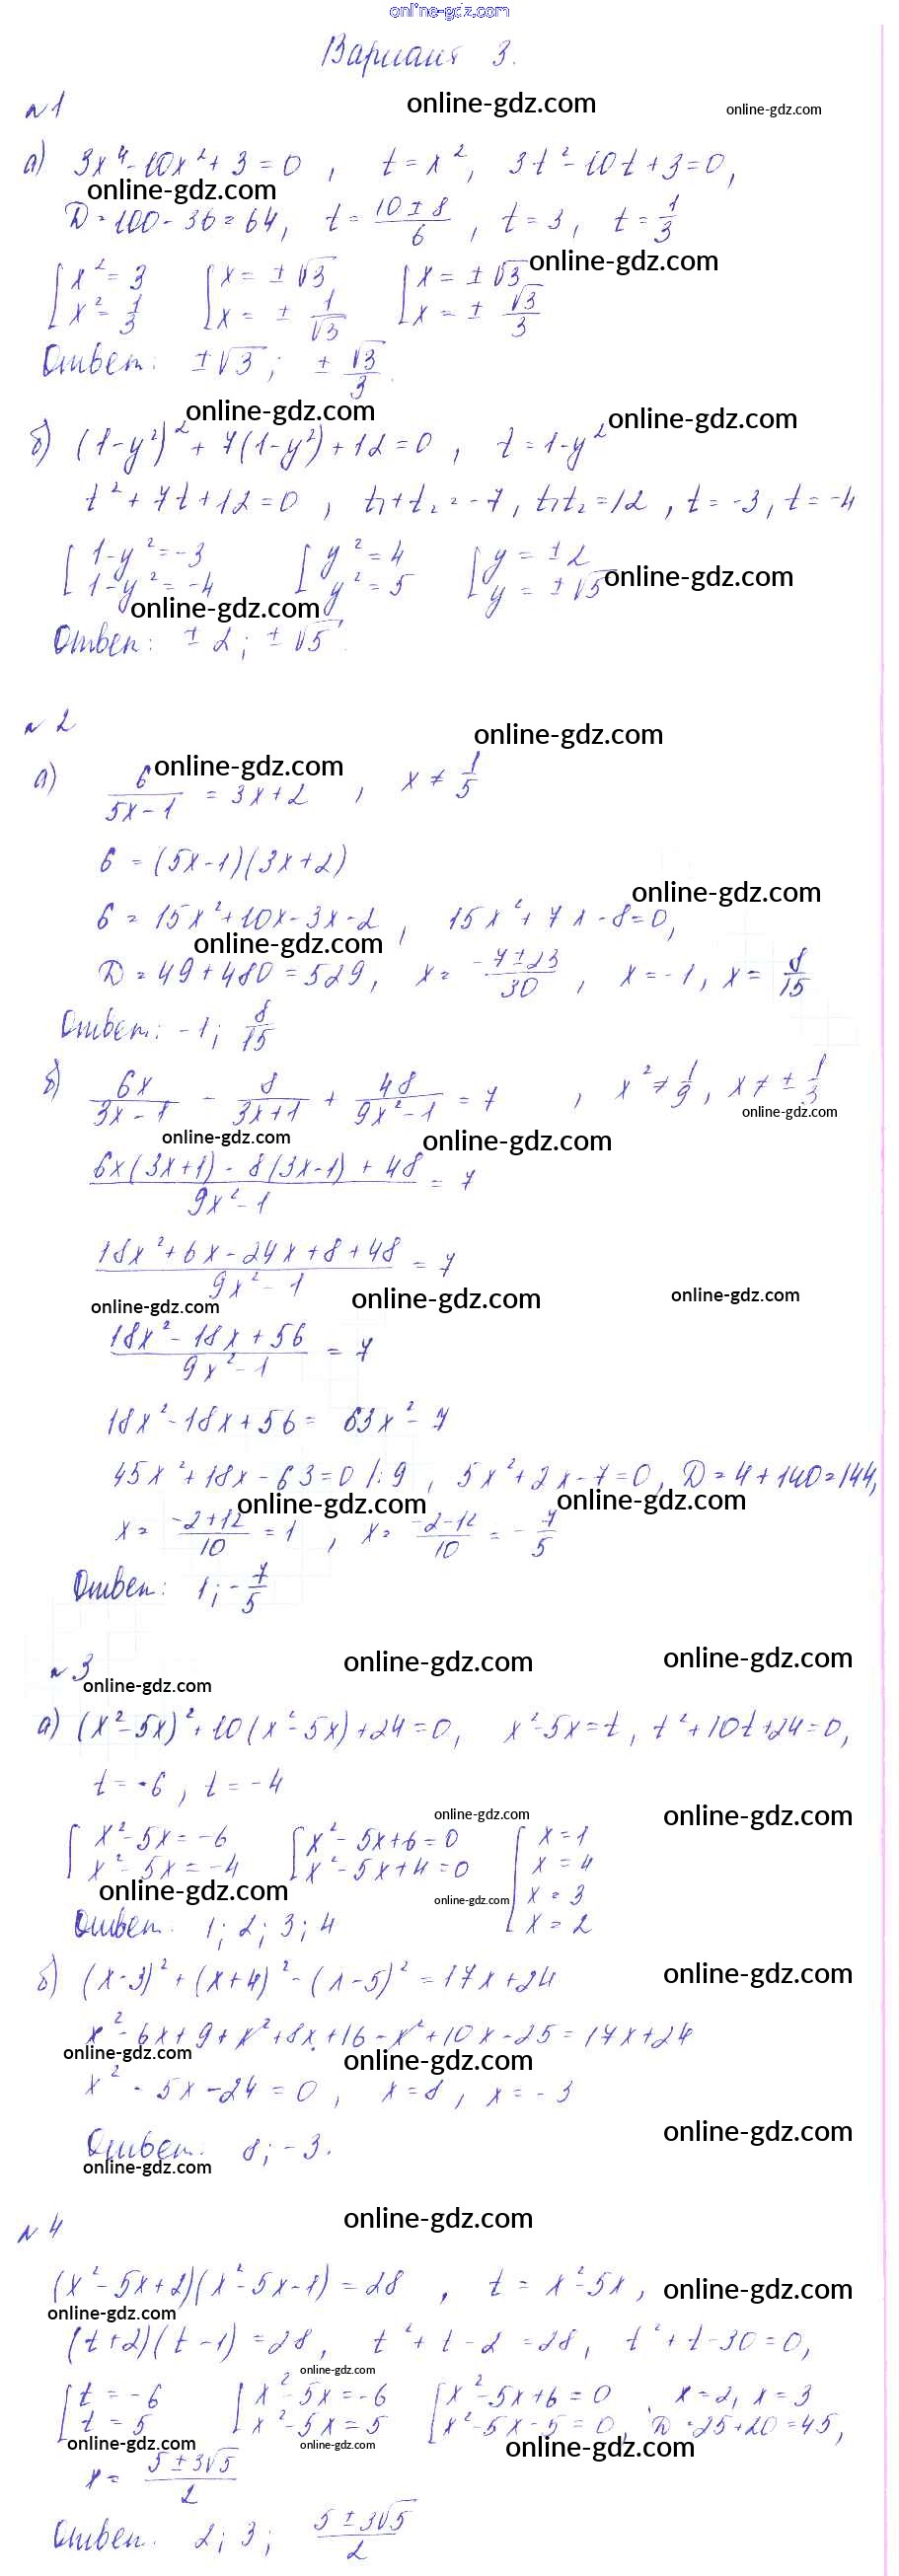 online-gdz.com
Вариант 3.
№1
online-gdz.com online-gdz.com
а) 3x⁴ - 10x² + 3 = 0 , t = x², 3t² - 10t + 3 = 0,
online-gdz.com
D = 100 - 36 = 64, t = (10 ± 8)/6 , t = 3, t = 1/3
online-gdz.com
[ x² = 3 [ x = ± √3 [ x = ± √3
[ x² = 1/3 [ x = ± 1/√3 [ x = ± √3/3
Ответ: ±√3 ; ± √3/3.
online-gdz.com online-gdz.com
б) (1-y²)² + 7(1-y²) + 12 = 0 , t = 1-y²
t² + 7t + 12 = 0 , t₁+t₂ = -7, t₁t₂ = 12 , t = -3, t = -4
[ 1-y² = -3 [ y² = 4 [ y = ± 2
[ 1-y² = -4 [ y² = 5 [ y = ± √5
online-gdz.com
online-gdz.com
Ответ: ± 2 ; ± √5.
№ 2
online-gdz.com
online-gdz.com
а) 6/(5x-1) = 3x+2 , x ≠ 1/5
6 = (5x-1)(3x+2)
online-gdz.com
6 = 15x²+10x-3x-2 , 15x²+7x-8=0,
online-gdz.com
D = 49+480 = 529, x = (-7±23)/30 , x = -1, x = 8/15
Ответ: -1; 8/15
б) 6x/(3x-1) - 8/(3x+1) + 48/(9x²-1) = 7 , x² ≠ 1/9, x ≠ ± 1/3
online-gdz.com
online-gdz.com online-gdz.com
(6x(3x+1) - 8(3x-1) + 48)/(9x²-1) = 7
(18x²+6x-24x+8+48)/(9x²-1) = 7
online-gdz.com online-gdz.com online-gdz.com
(18x²-18x+56)/(9x²-1) = 7
18x²-18x+56 = 63x²-7
45x²+18x-63=0 /:9 , 5x²+2x-7=0, D=4+140=144,
online-gdz.com online-gdz.com
x = (-2+12)/10 = 1 , x = (-2-12)/10 = -7/5
Ответ: 1; -7/5
№3
online-gdz.com online-gdz.com
online-gdz.com
а) (x²-5x)²+10(x²-5x)+24=0, x²-5x=t, t²+10t+24=0,
t = -6 , t = -4
online-gdz.com online-gdz.com
[ x²-5x = -6 [ x²-5x+6=0 [ x=1
[ x²-5x = -4 [ x²-5x+4=0 x = 4
online-gdz.com online-gdz.com x = 3
Ответ. 1; 2; 3; 4 x = 2
online-gdz.com
б) (x-3)²+(x+4)²-(x-5)² = 17x+24
x²-6x+9+x²+8x+16-x²+10x-25=17x+24
online-gdz.com online-gdz.com
x²-5x-24 = 0 , x=8, x=-3
online-gdz.com
Ответ. 8; -3.
online-gdz.com
№4
online-gdz.com
(x²-5x+2)(x²-5x-1) = 28 , t = x²-5x,
online-gdz.com
online-gdz.com
(t+2)(t-1) = 28, t²+t-2 = 28, t²+t-30=0,
online-gdz.com
[ t = -6 [ x²-5x=-6 [ x²-5x+6=0 x=2, x=3
[ t = 5 [ x²-5x=5 [ x²-5x-5=0, D=25+20=45,
online-gdz.com online-gdz.com online-gdz.com
x = (5±3√5)/2
Ответ. 2; 3; (5±3√5)/2